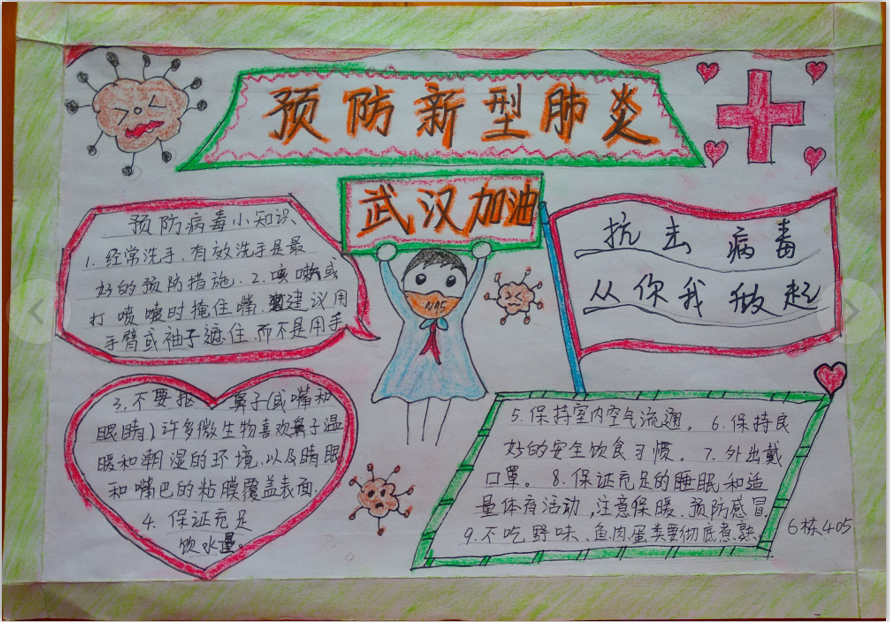 预防新型肺炎
武汉加油
N95
抗击病毒
从你我做起
预防病毒小知识
1. 经常洗手,有效洗手是最
好的预防措施. 2. 咳嗽或
打喷嚏时掩住嘴,建议用
手臂或袖子遮住,而不是用手
3. 不要抠 鼻子(或嘴和
眼睛)许多微生物喜欢鼻子温
暖和潮湿的环境.以及睛眼
和嘴巴的粘膜覆盖表面.
4. 保证充足
饮水量。
5. 保持室内空气流通。 6. 保持良
好的安全饮食习惯。 7. 外出戴
口罩。 8. 保证充足的睡眠和适
量体育活动,注意保暖.预防感冒。
9. 不吃野味、鱼肉蛋类要彻底煮熟。
6栋405